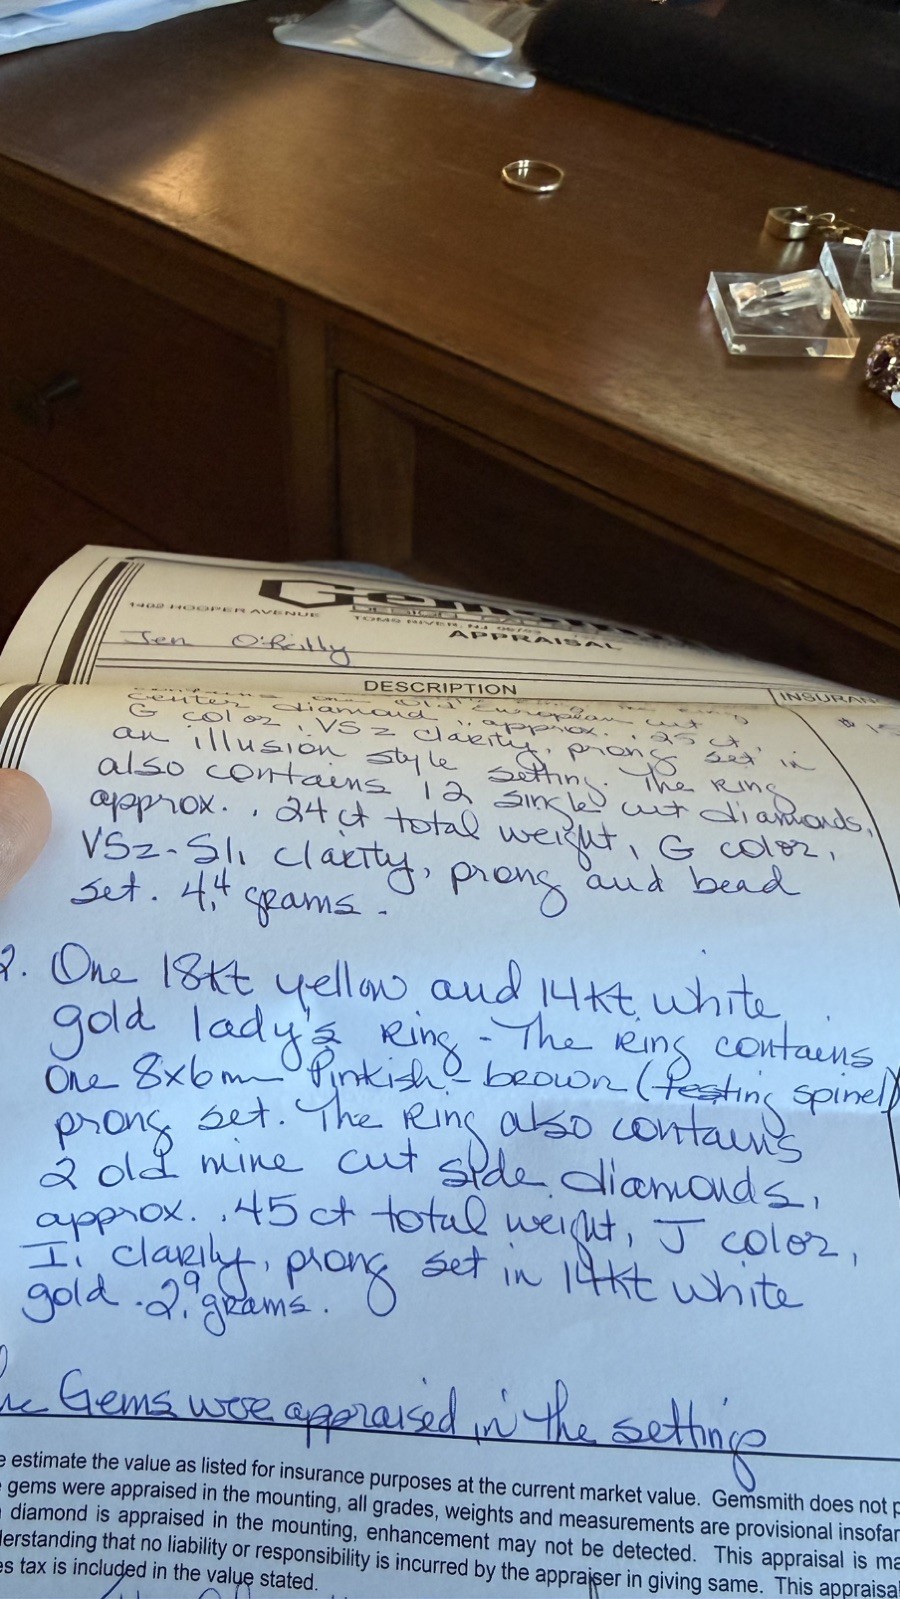 Gems
DESIGN
1402 HOOPER AVENUE TOMS RIVER, NJ
APPRAISAL
Jen O'Reilly
DESCRIPTION
INSURAN
European cut
center diamond, approx. .25 ct,
G color, VS2 clarity, prong set in
an illusion style setting. The Ring
also contains 12 single cut diamonds,
approx. .24 ct total weight, G color,
VS2-SI1 clarity, prong and bead
set. 4.4 grams.
2. One 18Kt yellow and 14Kt white
gold lady's Ring - The Ring contains
One 8x6mm Pinkish-brown (testing spinel)
prong set. The Ring also contains
2 old mine cut side diamonds,
approx. .45 ct total weight, J color,
I1 clarity, prong set in 14Kt white
gold. 2.9 grams.
Gems were appraised in the setting
e estimate the value as listed for insurance purposes at the current market value. Gemsmith does not p
gems were appraised in the mounting, all grades, weights and measurements are provisional insofar
diamond is appraised in the mounting, enhancement may not be detected. This appraisal is ma
derstanding that no liability or responsibility is incurred by the appraiser in giving same. This appraisa
es tax is included in the value stated.